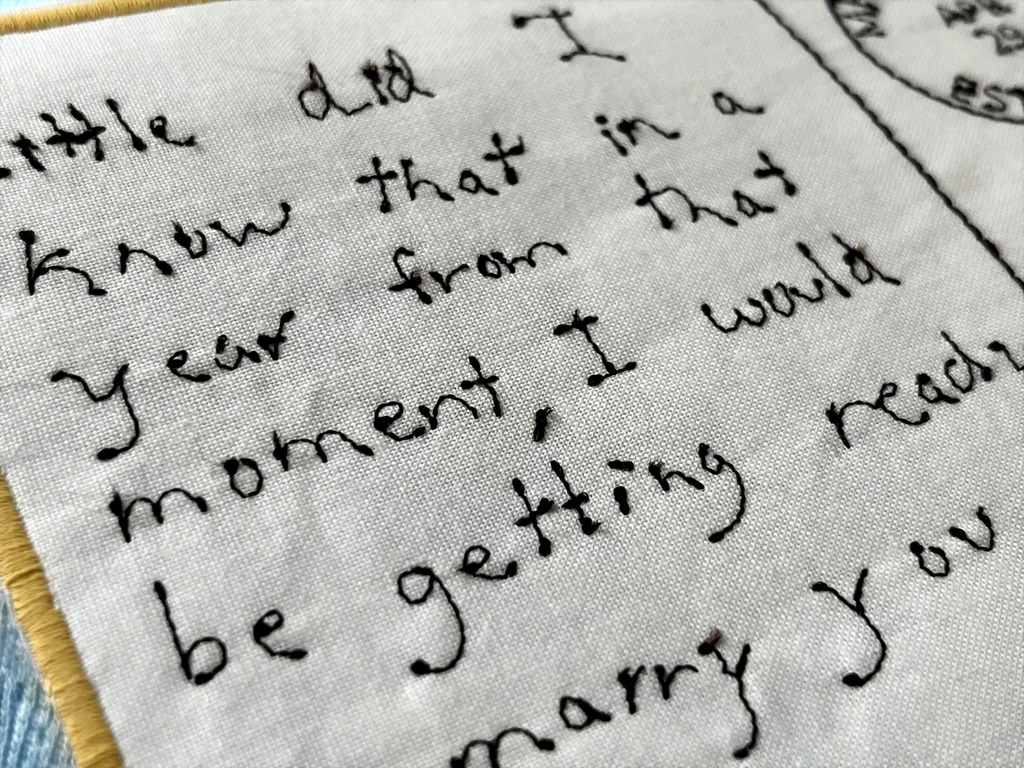 did I
know that in a
year from that
moment, I would
be getting ready
marry you
EST